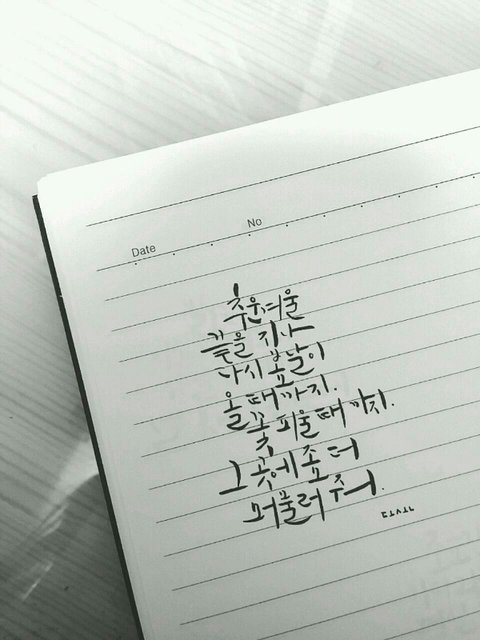 Date No
추운겨울
끝을 지나
다시 봄날이
올 때까지.
꽃 피울 때까지.
그 곳에 좀 더
머물러 줘.